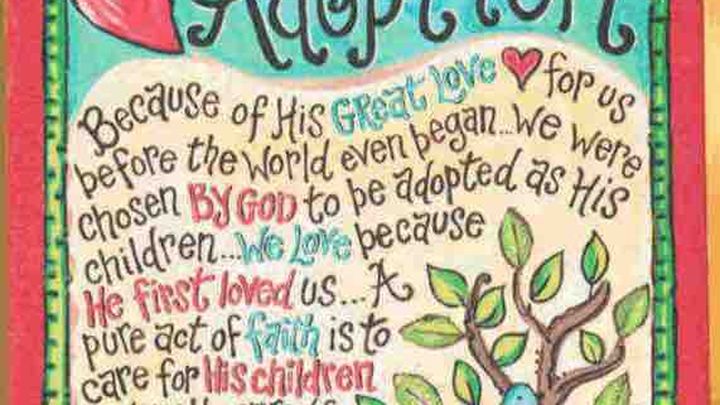 Adoption
Because of His GReat Love for us
before the World even began...We were
chosen By GOD to be adopted as His
children...We Love because
He first loved us...A
pure act of faith is to
care for His children